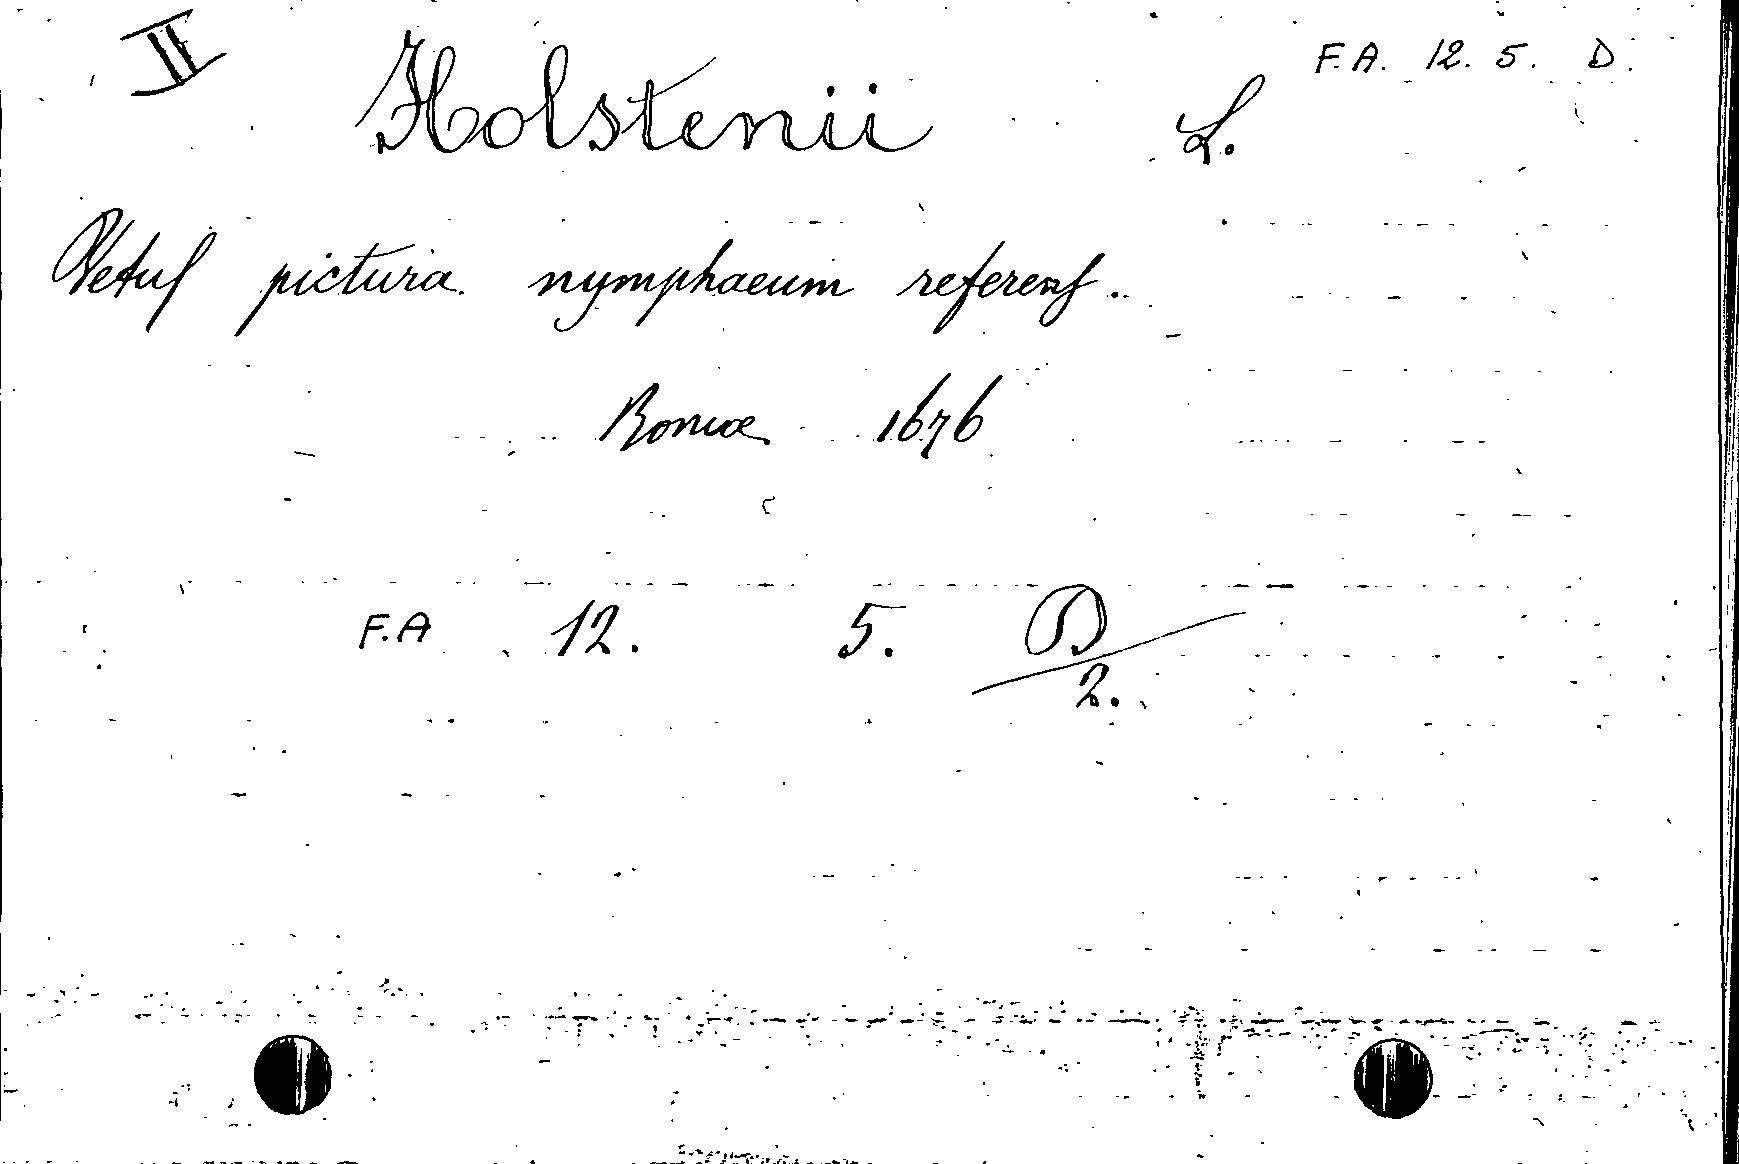 II
F. A. 12. 5. D.
Holstenii L.
Vetus pictura nymphaeum referens.
Romae 1676
F. A 12. 5. D/2.